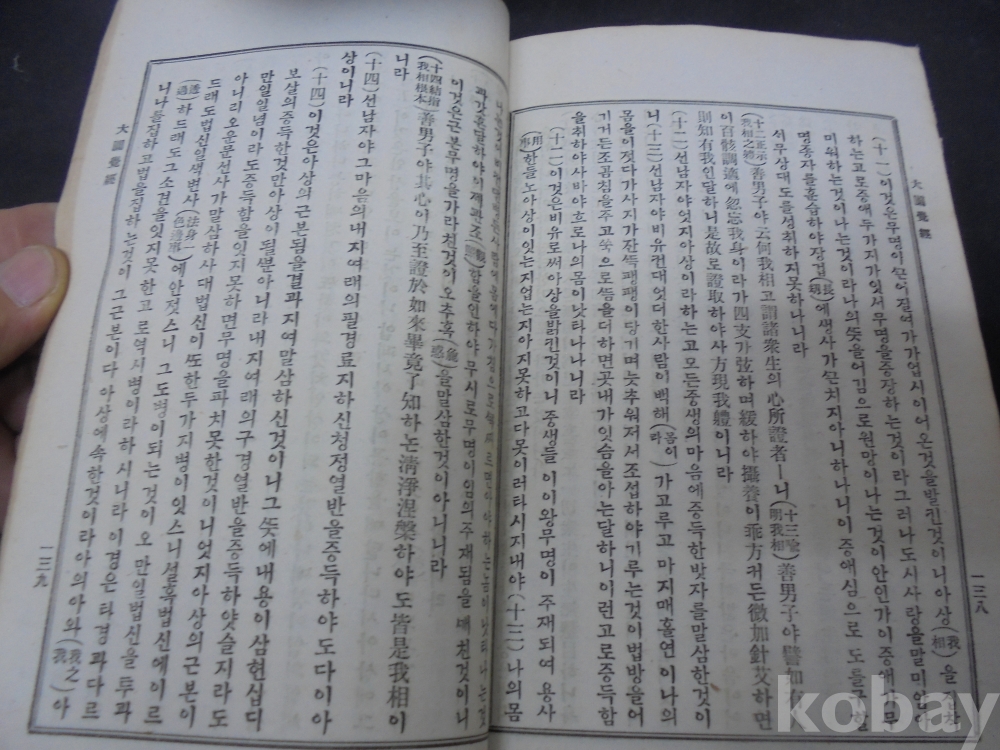 大圓覺經
(十一)이것은무명이끈어질여가가업시이어온것을발킨것이니아상(我相)을집착
하는고로증애두가지가잇서무명을증장하는것이라그러나도시사랑을말미암아
미워하는것이나는것이라나의뜻을어김으로원망이나는것이안인가이증애시무
명종자를훈습하야장겁(長劫)에생사가끈치지아니하나니이증애심으로도들구할
세무상대도를성취하지못하나니라
(十二正示我相之跡)善男子야云何我相고謂諸衆生의心所證者ㅣ니(十三喩明我相)善男子야譬如有人
이百骸調適에忽忘我身이라가四支가弦하며緩하야攝養이乖方커든微加針艾하면
則知有我인달하니是故로證取하야사方現我體이니라
(十二)선남자야엇지아상이라하는고모든중생의마음에증득한밧자를말삼한것이
니(十三)선남자야비유컨대엇더한사람이백해(몸이라)가고루고마지매홀연이나의
몸을이젓다가사지가잔뜩팽팽이당기며늣추워저서조섭하야기루는것이법방을어
기거든조곰침들주고쑥으로뜸을더하면곳내가잇슴을아는달하니이런고로증득함
을취하야사바야흐로나의몸이낫타나나니라
(十二)이것은비유로써아상을밝킨것이니중생들이이왕무명이주재되여용사
(用事)한들노아상이잇는지업는지아지못하고다못이러타시지내야(十三)나의몸
一三八
이것은근본무명을가라친것이오추혹(麁惑)을말삼한것이아니니라
(十四結指我相根本)善男子야其心이乃至證於如來畢竟了知하논淸淨涅槃하야도皆是我相이
니라
(十四)선남자야그마음의내지여래의필경료지하신청정열반을증득하야도다이아
상이니라
(十四)이것은아상의근본됨을결과지여말삼하신것이니그뜻에내용이삼현십디
보살의증득한것만아상이될뿐아니라내지여래의구경열반을증득하얏슬지라도
만일일념이라도증득함을잇지못하면무명을파치못한것이니엇지아상의근본이
아니리오운문선사가말삼하사대법신이또한두가지병이잇스니설혹법신에이르
드래도법신일색변사(法身一色邊事)에안젓스니그도병이되는것이오만일법신을투과
(透過)하드래도그소견을잇지못한고로역시병이라하시니라이경은타경과다르
니나를집하고법을집하는것이그근본이다아상에속한것이라아의아와(我之我)아
大圓覺經
一三九
kobay